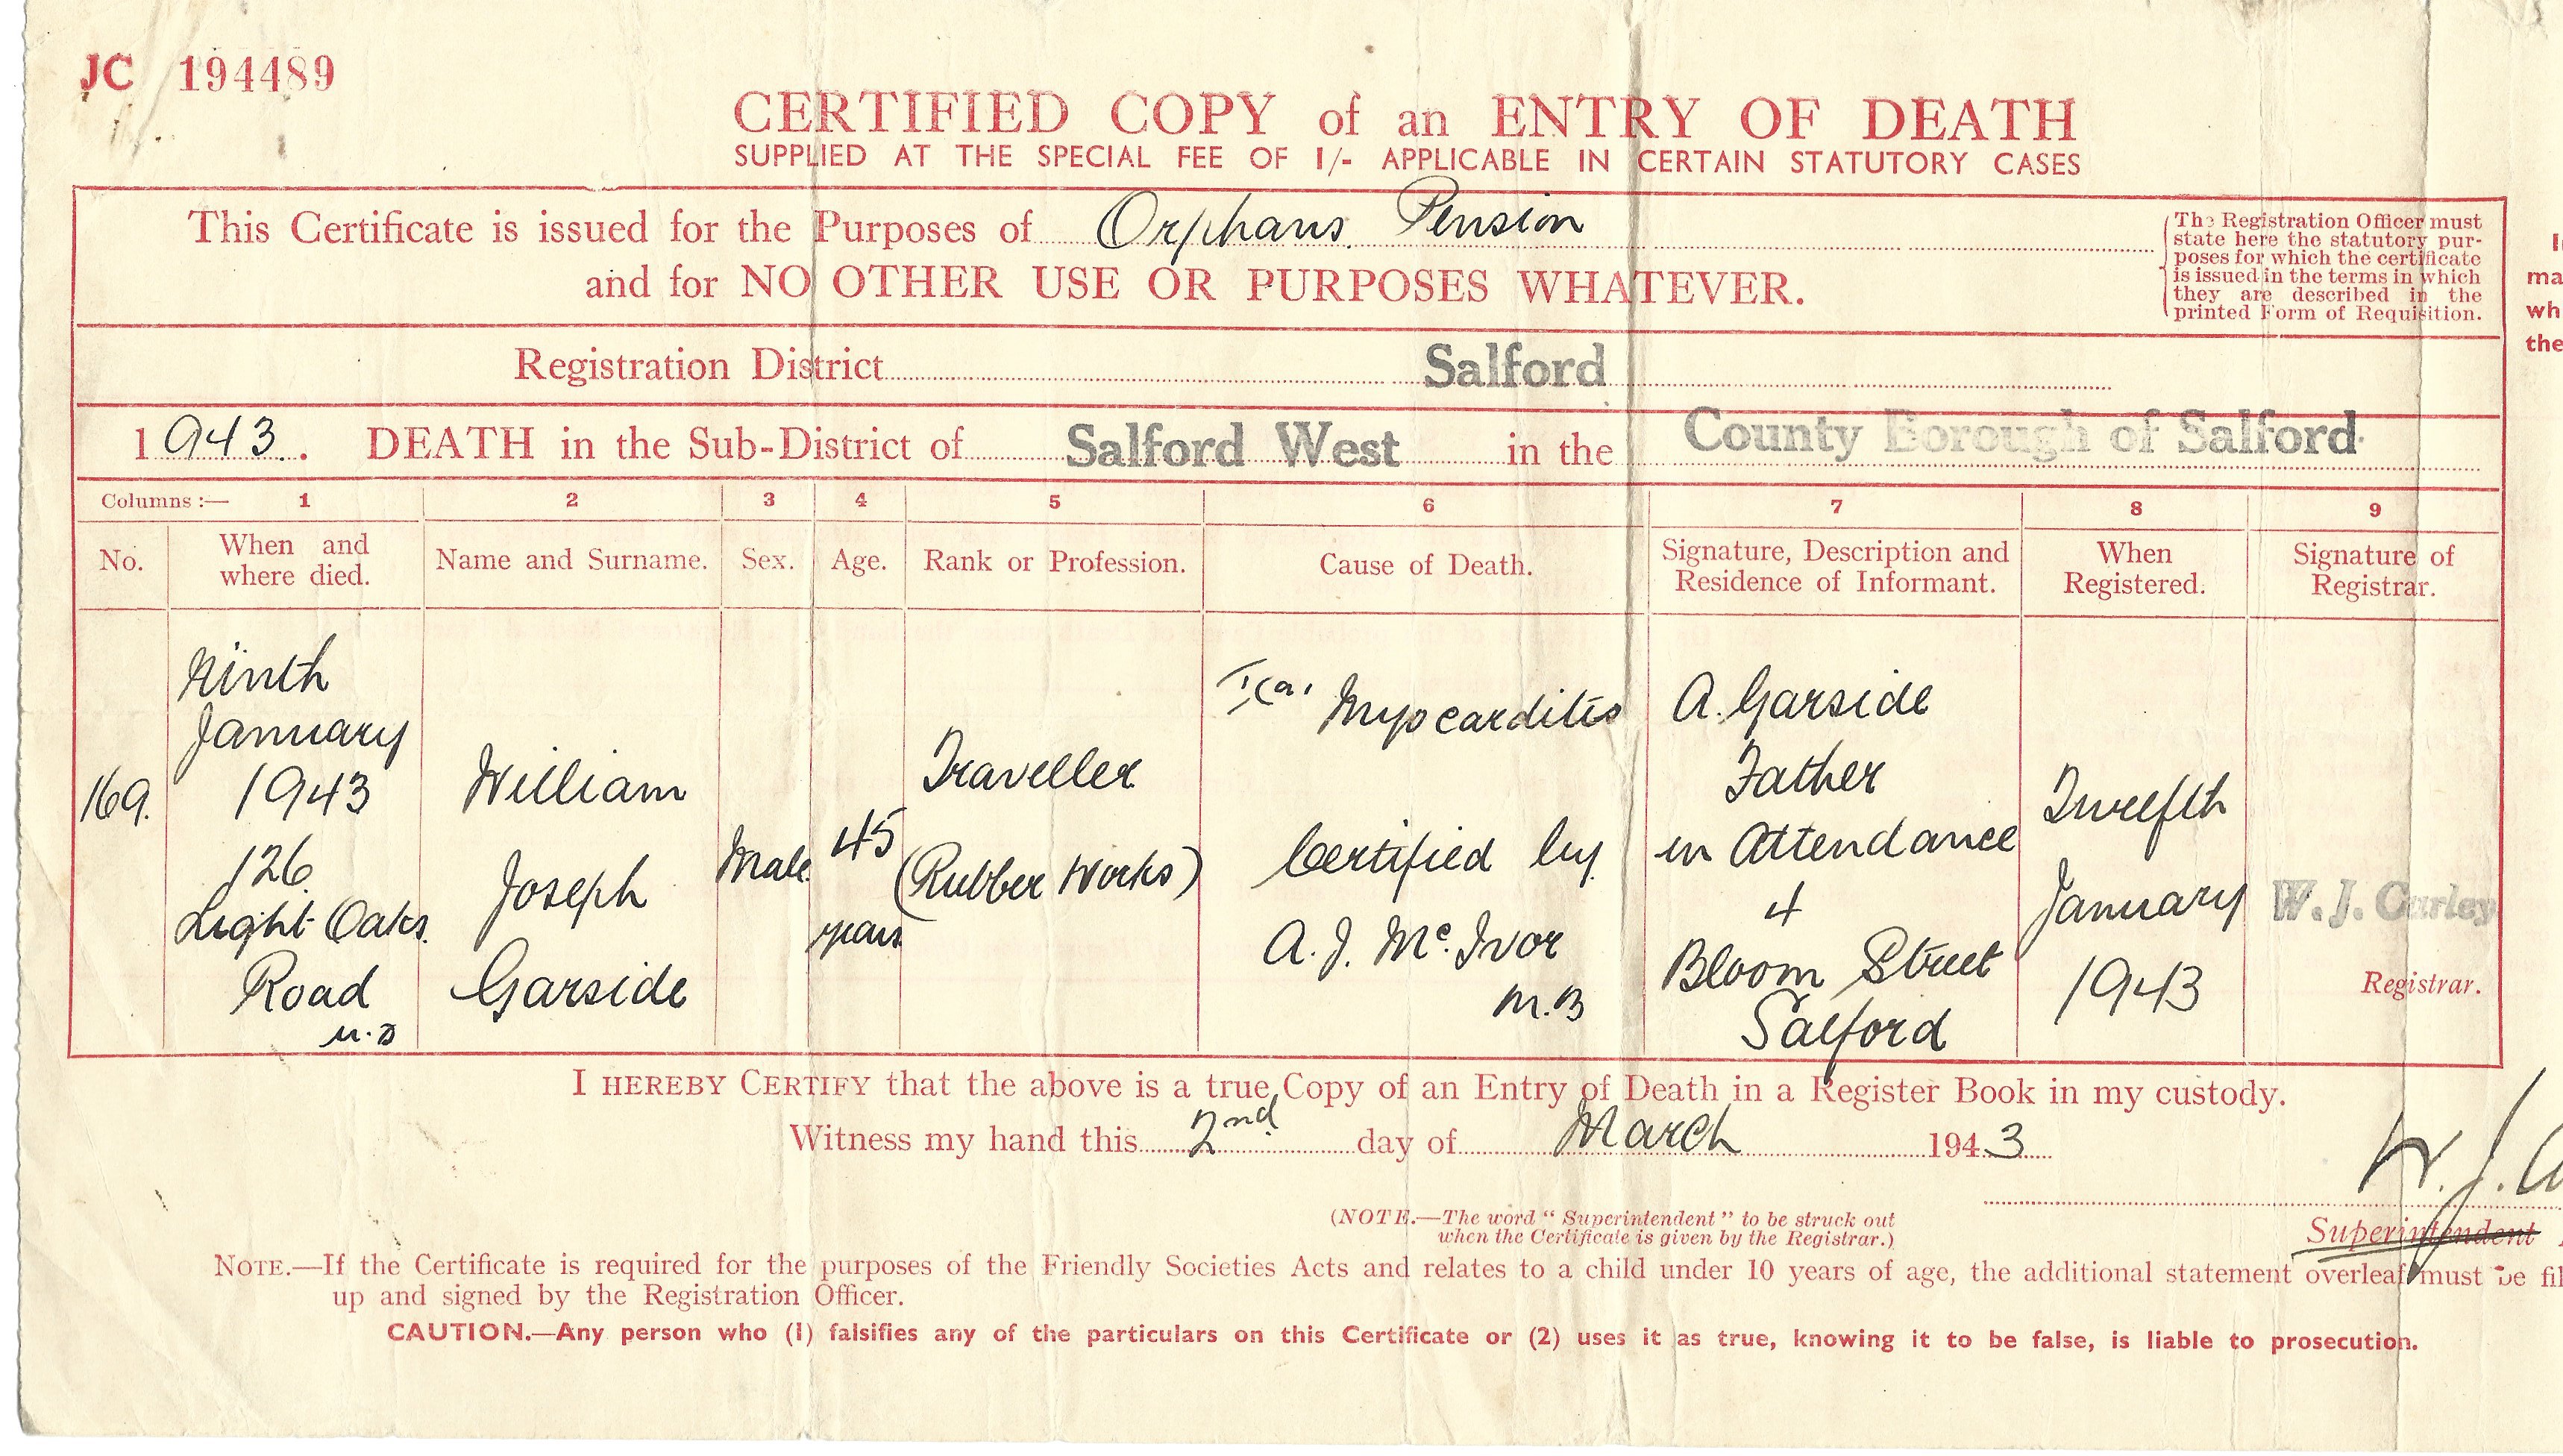 JC 194489
CERTIFIED COPY of an ENTRY OF DEATH
SUPPLIED AT THE SPECIAL FEE OF 1/- APPLICABLE IN CERTAIN STATUTORY CASES
This Certificate is issued for the Purposes of Orphans. Pension
and for NO OTHER USE OR PURPOSES WHATEVER.
The Registration Officer must
state here the statutory pur-
poses for which the certificate
is issued in the terms in which
they are described in the
printed Form of Requisition.
ma
wh
the
Registration District Salford
1943. DEATH in the Sub-District of Salford West in the County Borough of Salford
Columns :— 1 2 3 4 5 6 7 8 9
No.
When and
where died.
Name and Surname.
Sex.
Age.
Rank or Profession.
Cause of Death.
Signature, Description and
Residence of Informant.
When
Registered.
Signature of
Registrar.
169.
Ninth
January
1943
126
Light Oaks
Road
U.D
William
Joseph
Garside
Male
45
years
Traveller
(Rubber Works)
I(a) Myocarditis
Certified by
A. J. McIvor
M.B
A. Garside
Father
in Attendance
4
Bloom Street
Salford
Twelfth
January
1943
W. J. Curley
Registrar.
I HEREBY CERTIFY that the above is a true Copy of an Entry of Death in a Register Book in my custody.
Witness my hand this 2nd day of March 1943
W. J. C
(NOTE.—The word "Superintendent" to be struck out
when the Certificate is given by the Registrar.)
Superintendent
NOTE.—If the Certificate is required for the purposes of the Friendly Societies Acts and relates to a child under 10 years of age, the additional statement overleaf must be fil
up and signed by the Registration Officer.
CAUTION.—Any person who (1) falsifies any of the particulars on this Certificate or (2) uses it as true, knowing it to be false, is liable to prosecution.